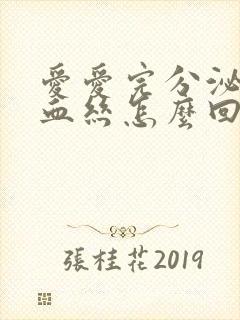 愛愛完分泌
血絲怎麼回
張桂花2019